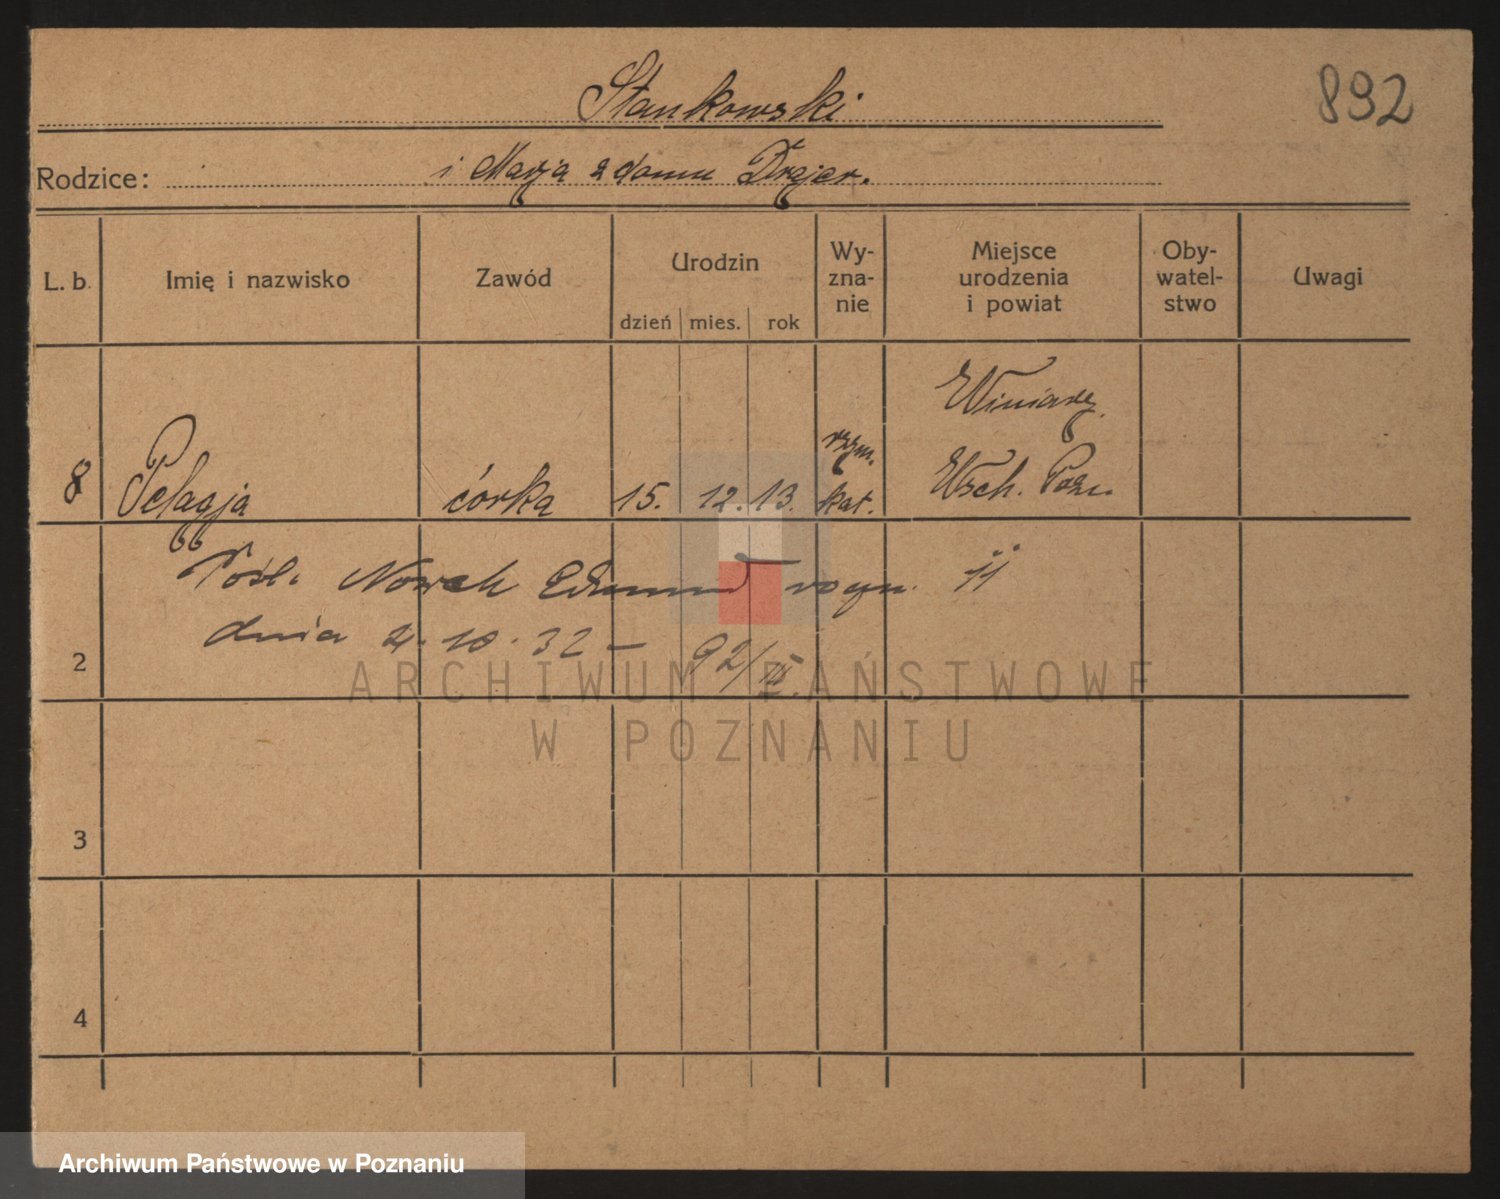 Stankowski
892
Rodzice: i Marja z domu Drajer.
L. b. Imię i nazwisko Zawód Urodzin dzień mies. rok Wy-zna-nie Miejsce urodzenia i powiat Oby-watel-stwo Uwagi
Winiary.
rzym.
8 Pelagja córka 15. 12. 13. kat. Wsch. Pozn.
Pośl. Nowak Edmund
dnia 2. 10. 32 – 92/III.
2
3
4
ARCHIWUM PAŃSTWOWE
W POZNANIU
Archiwum Państwowe w Poznaniu